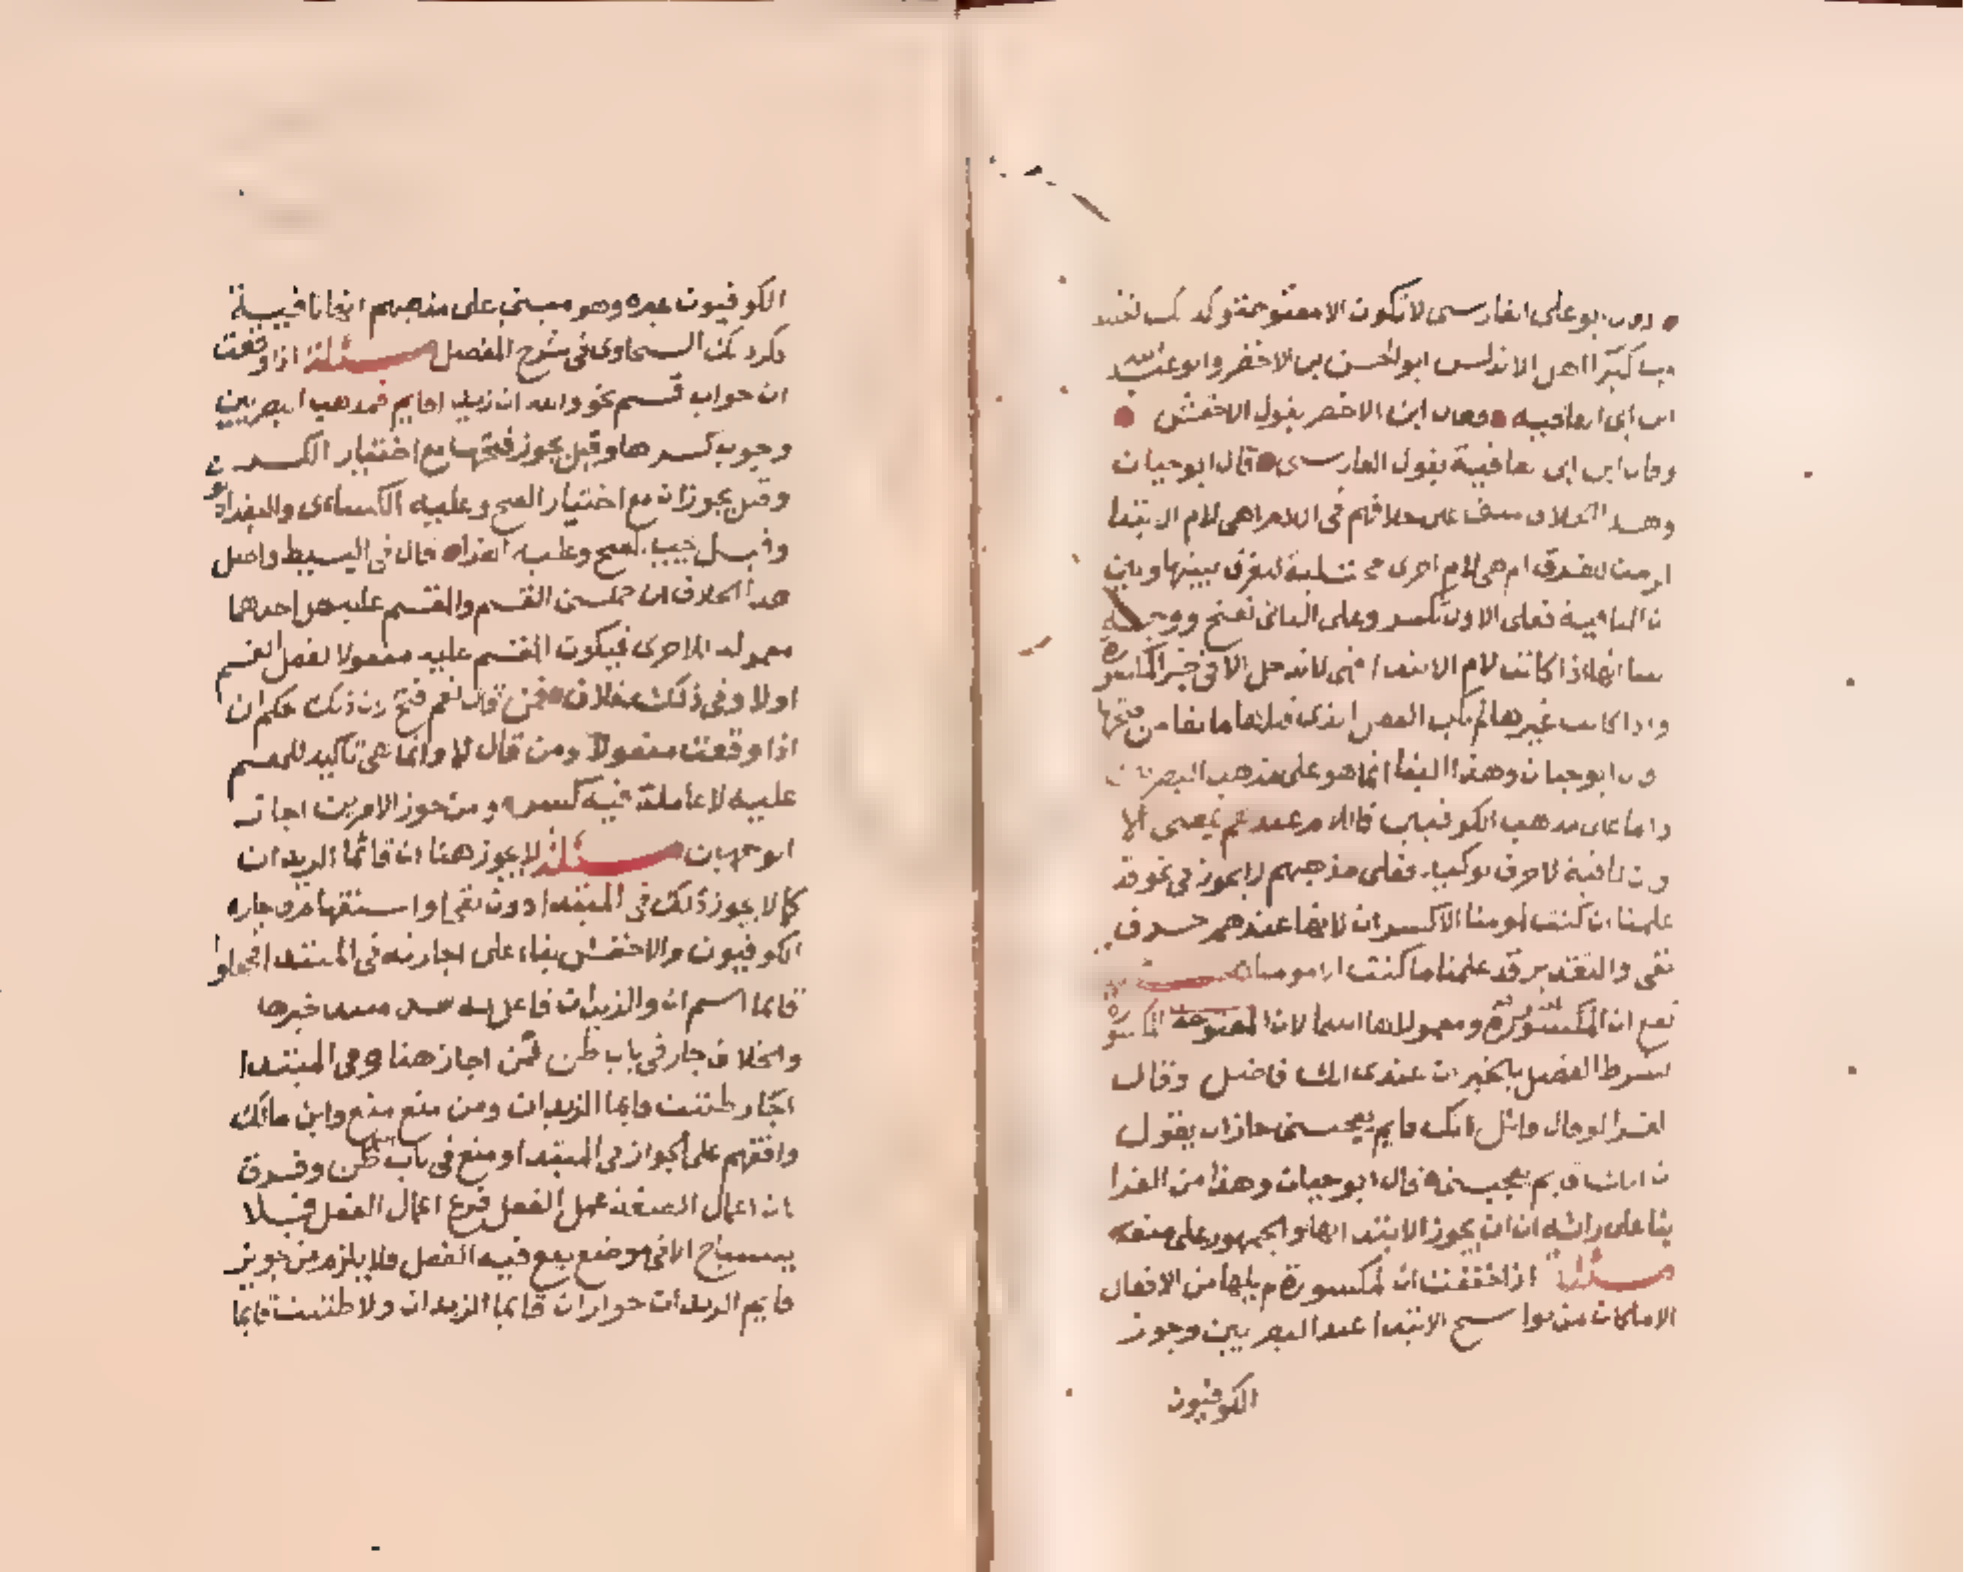 وقال ابو على الفارسى لا تكون الا مفتوحة وكذلك اختلف
فيها كبرا اهل الاندلس ابو الحسن بن الاخضر وابو عبد الله
ابن ابى العافية فقال ابن الاخضر بقول الاخفش
وقال ابن ابى العافية بقول الفارسى قال ابو حيان
وهذا الخلاف مبنى على خلافهم فى اللام اهى لام الابتدا
الزمت للفرق ام هى لام اخرى مجتلبة للفرق بينها وبين
ان النافية فعلى الاول تكسر وعلى الثانى تفتح ووجهه
انها اذا كانت لام الابتدا فهى لا تدخل الا فى خبر المكسورة
واذا كانت غيرها لم يكن الفعل الذى قبلها مانعا من فتحها
قال ابو حيان وهذا البنا انما هو على مذهب البصريين
واما على مذهب الكوفيين فاللام عندهم بمعنى الا
وان نافية لا حرف توكيد فعلى مذهبهم لا يجوز فى نحو قد
علمنا ان كنت لمومنا الا كسر ان لانها عندهم حرف
نفى والتقدير قد علمنا ما كنت الا مومنا مسئلة
تقع ان المفتوحة ومعمولاها اسما لان المكسورة
بشرط الفصل بالخبر ان عندى انك فاضل وقال
الفرا لو قال قائل انك قايم يعجبنى جاز ان يقول
ان انك قايم يعجبنى قال ابو حيان وهذا من الفرا
بنا على رايه ان ان يجوز الابتدا بها والجمهور على منعه
مسئلة اذا خففت ان المكسورة لم يلها من الافعال
الا ما كان من نواسخ الابتدا عند البصريين وجوز
الكوفيون
الكوفيون غيره وهو مبنى على مذهبهم انها نافية
ذكر ذلك السخاوى فى شرح المفصل مسئلة اذا وقعت
ان جواب قسم نحو والله ان زيدا قايم فمذهب البصريين
وجوب كسرها وقيل يجوز فتحها مع اختيار الكسر
وقيل يجوزان مع اختيار الفتح وعليه الكساءى والبغداديون
وقيل يجب الفتح وعليه الفرا قال فى البسيط واصل
هذا الخلاف ان جملتى القسم والمقسم عليه هل احدهما
معمولة للاخرى فيكون المقسم عليه مفعولا لفعل القسم
اولا وفى ذلك خلاف فمن قال نعم فتح لان ذلك حكم ان
اذا وقعت مفعولا ومن قال لا وانما هى تاكيد للمقسم
عليه لا عاملة فيه كسر ومن جوز الامرين اجاز
الوجهين مسئلة لا يجوز هنا ان قائما الزيدان
كما لا يجوز ذلك فى المبتدا دون نفى او استفهام وجازه
الكوفيون والاخفش بناء على اجازته فى المبتدا فجعلوا
قايما اسم ان والزيدان فاعل به سد مسد خبرها
والخلاف جار فى باب ظن فمن اجاز هنا وفى المبتدا
اجاز ظننت قايما الزيدان ومن منع منع وابن مالك
وافقهم على الجواز فى المبتدا ومنع فى باب ظن وفرق
بان اعمال الصفة عمل الفعل فرع اعمال الفعل فلا
يستباح الا فى موضع يقع فيه الفعل فلا يلزم من تجويز
قايم الزيدان جواز ان قايما الزيدان ولا ظننت قايما